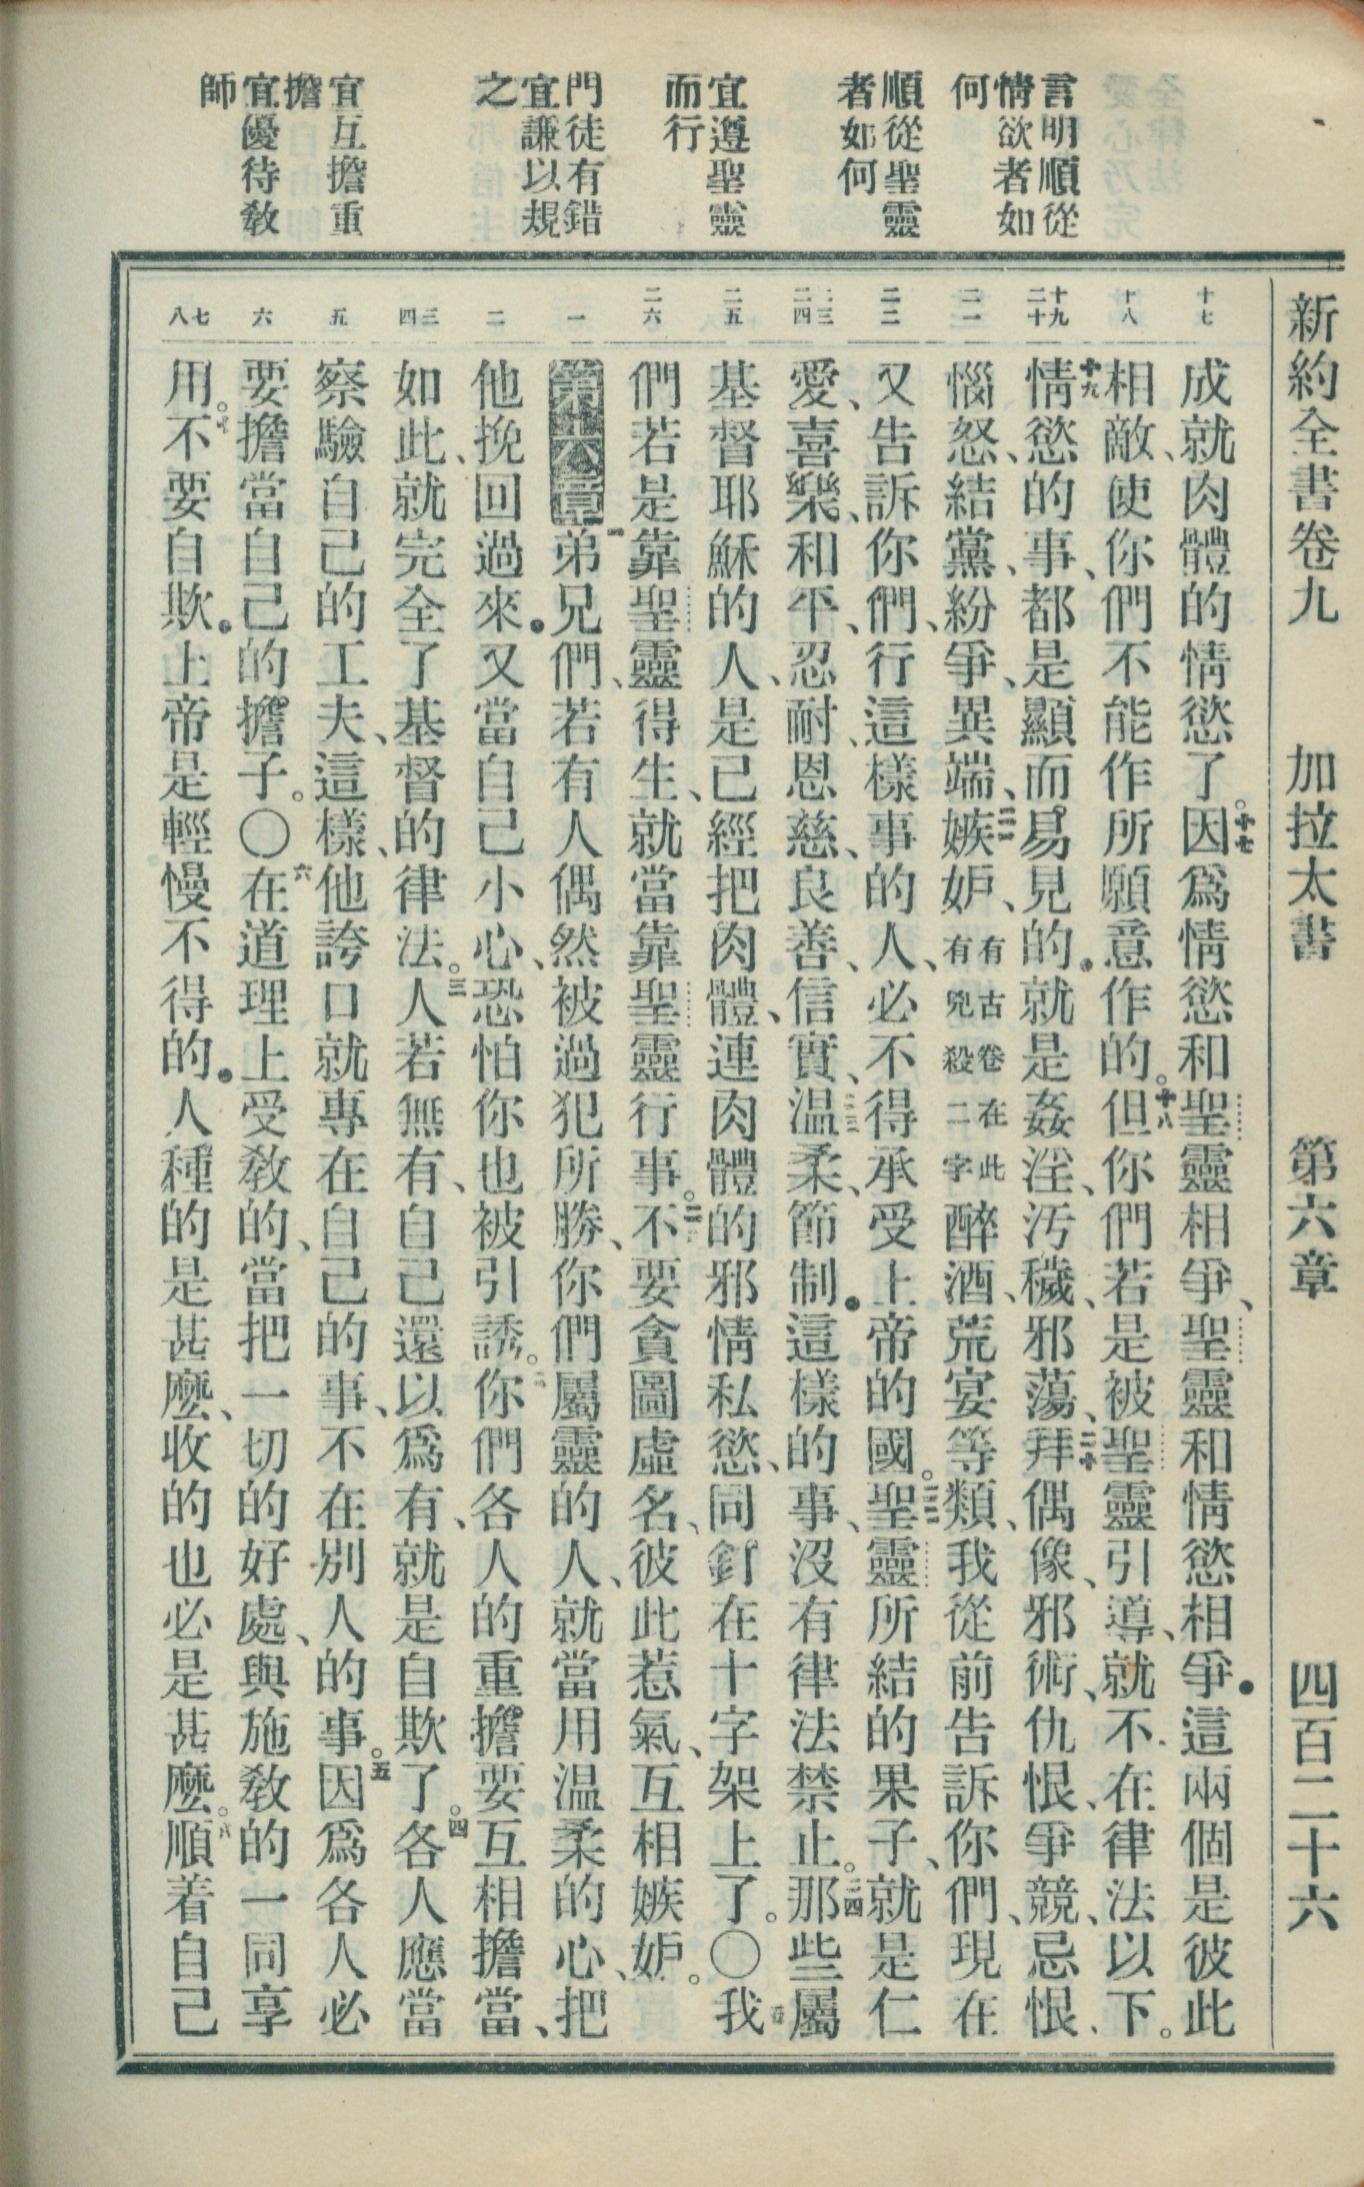 新約全書卷九　加拉太書　第六章　四百二十六
言明順從
情欲者如
何
順從聖靈
者如何
宜遵聖靈
而行
門徒有錯
宜謙以規
之
宜互擔重
擔
宜優待敎
師
十七
十八
十九
二十
二一
二二
二三
二四
二五
二六
一
二
三
四
五
六
七
八
成就肉體的情慾了。十七因爲情慾和聖靈相爭、聖靈和情慾相爭．這兩個是彼此
相敵、使你們不能作所願意作的。十八但你們若是被聖靈引導、就不在律法以下。
十九情慾的事、都是顯而易見的．就是姦淫、汚穢、邪蕩、二十拜偶像、邪術、仇恨、爭競、忌恨、
惱怒、結黨、紛爭、異端、二一嫉妒、有古卷在此有兇殺二字醉酒、荒宴等類、我從前告訴你們、現在
又告訴你們、行這樣事的人、必不得承受上帝的國。二二聖靈所結的果子、就是仁
愛、喜樂、和平、忍耐、恩慈、良善、信實、二三温柔、節制．這樣的事、沒有律法禁止。二四那些屬
基督耶穌的人、是已經把肉體、連肉體的邪情私慾、同釘在十字架上了。〇二五我
們若是靠聖靈得生、就當靠聖靈行事。二六不要貪圖虛名、彼此惹氣、互相嫉妒。
第六章一弟兄們、若有人偶然被過犯所勝、你們屬靈的人、就當用温柔的心、把
他挽回過來．又當自己小心、恐怕你也被引誘。二你們各人的重擔要互相擔當、
如此、就完全了基督的律法。三人若無有、自己還以爲有、就是自欺了。四各人應當
察驗自己的工夫、這樣、他誇口就專在自己的事、不在別人的事。五因爲各人必
要擔當自己的擔子。〇六在道理上受敎的、當把一切的好處、與施敎的一同享
用。七不要自欺．上帝是輕慢不得的．人種的是甚麽、收的也必是甚麽。八順着自己